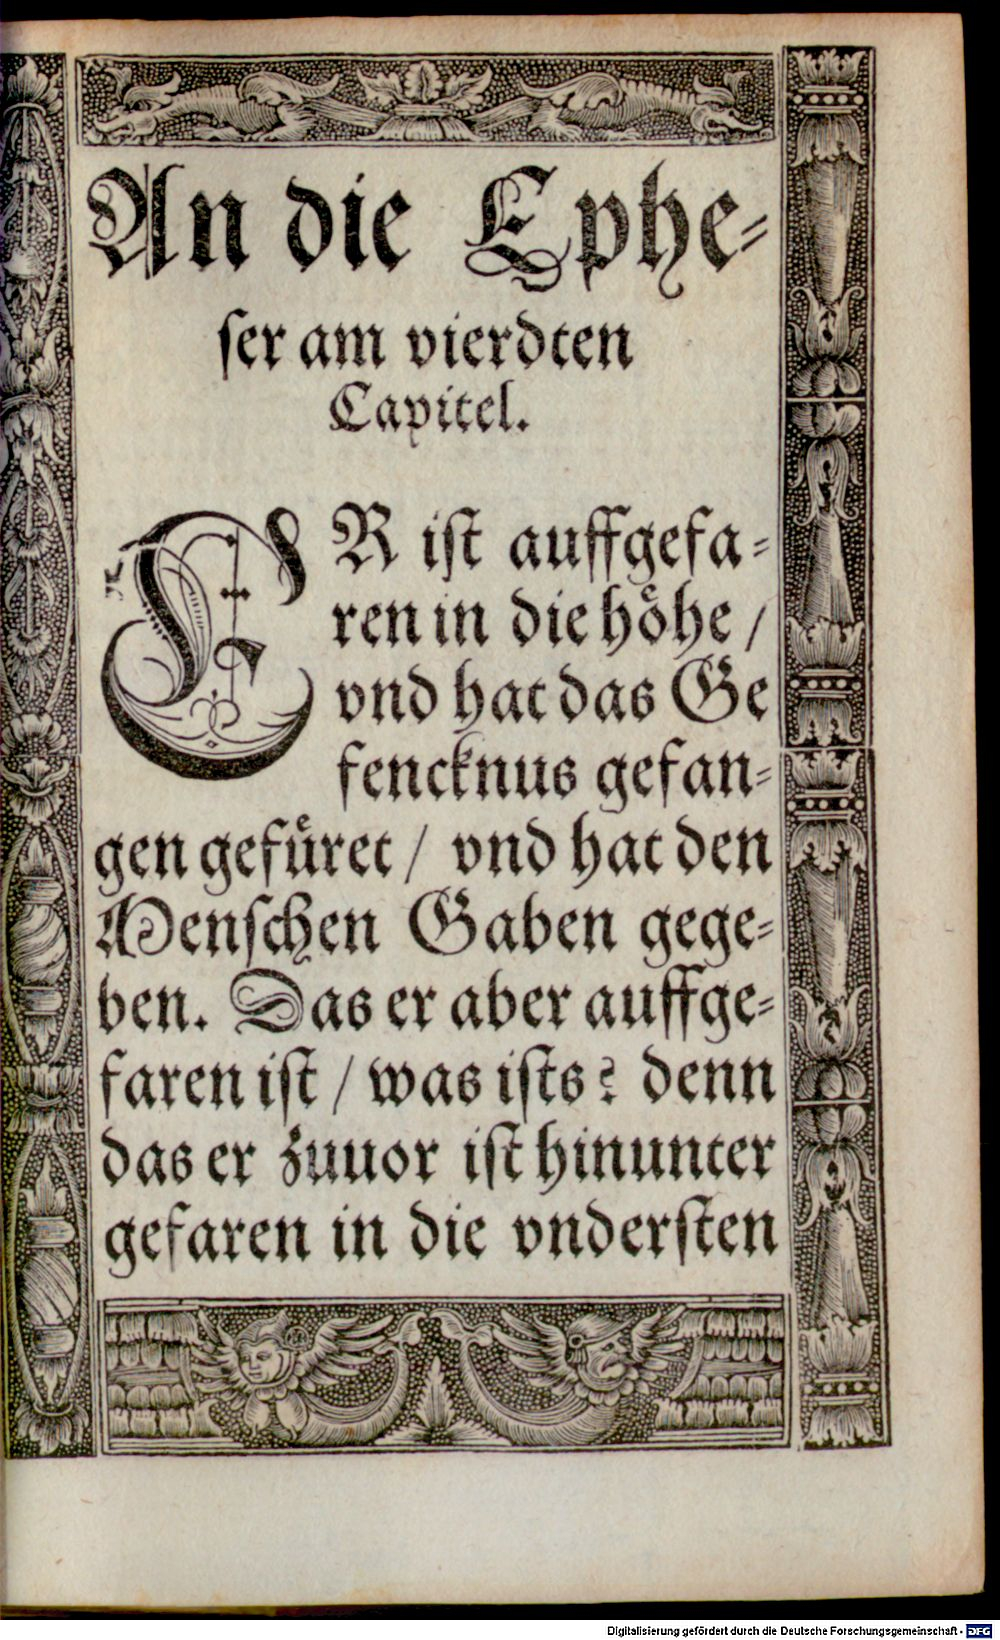 An die Ephe-
ſer am vierdten
Capitel.
ER iſt auffgefa-
ren in die höhe /
vnd hat das Ge
fencknus gefan-
gen gefüret / vnd hat den
Menſchen Gaben gege-
ben. Das er aber auffge-
faren iſt / was iſts? denn
das er zuuor iſt hinunter
gefaren in die vnderſten
Digitalisierung gefördert durch die Deutsche Forschungsgemeinschaft - DFG